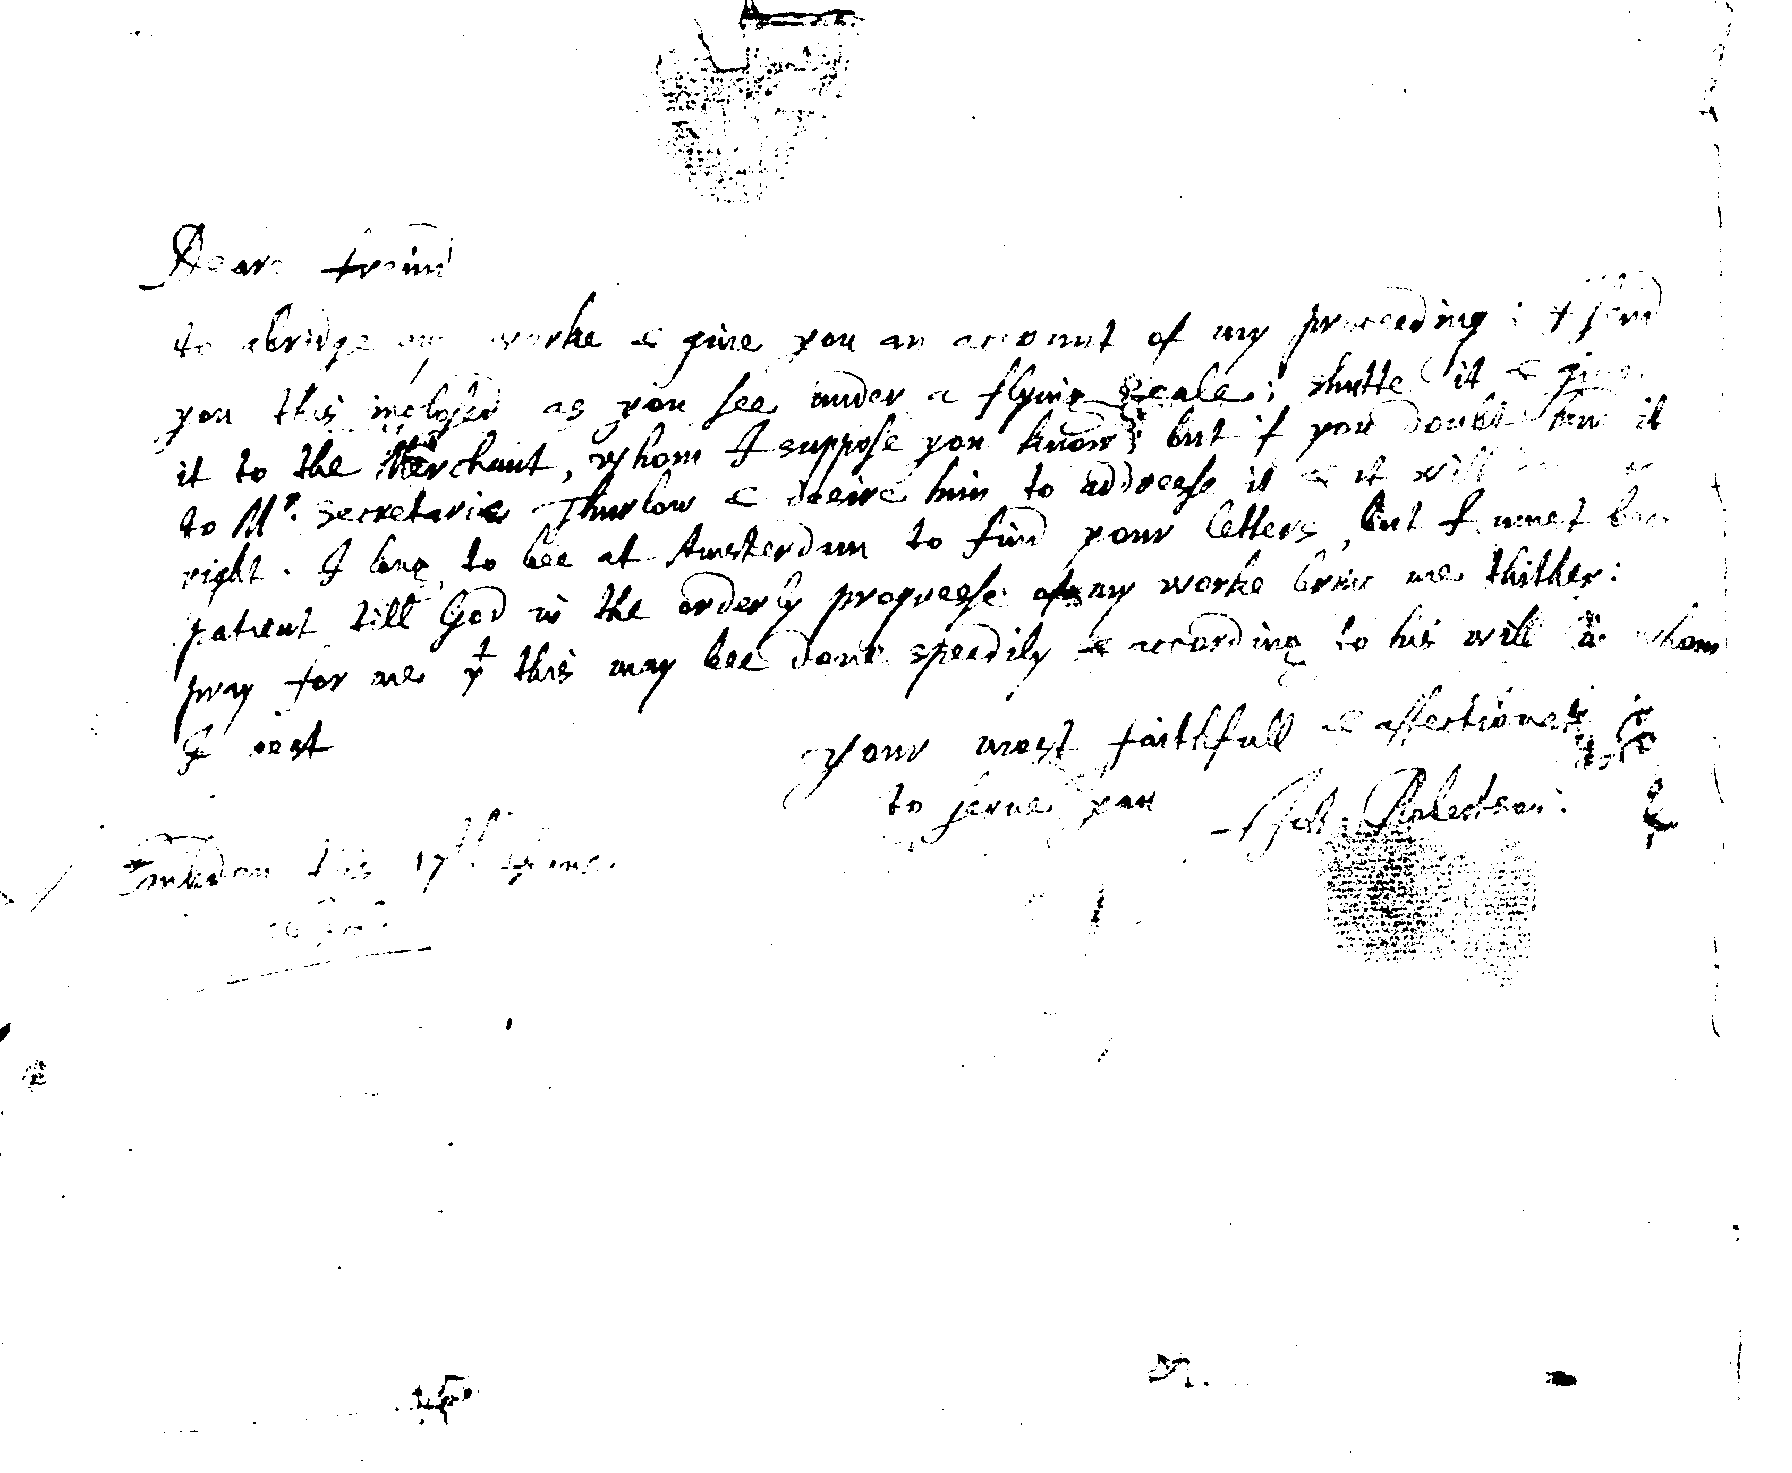 Deare freind
to abridge my worke & give you an account of my proceeding: I send
you this inclosed as you see under a flying seale; shutte it & give
it to the Merchant, whom I suppose you know; but if you doubt it
to Mr. Secretarie Thurlow & desire him to addresse it & it will
right. I long to bee at Amsterdam to find your letters, but I must bee
patient till God in the orderly progresse of my worke bring me thither:
pray for me yt this may bee done speedily & according to his will in whom
I rest
your most faithfull & affectionate
to serve you
this 17th